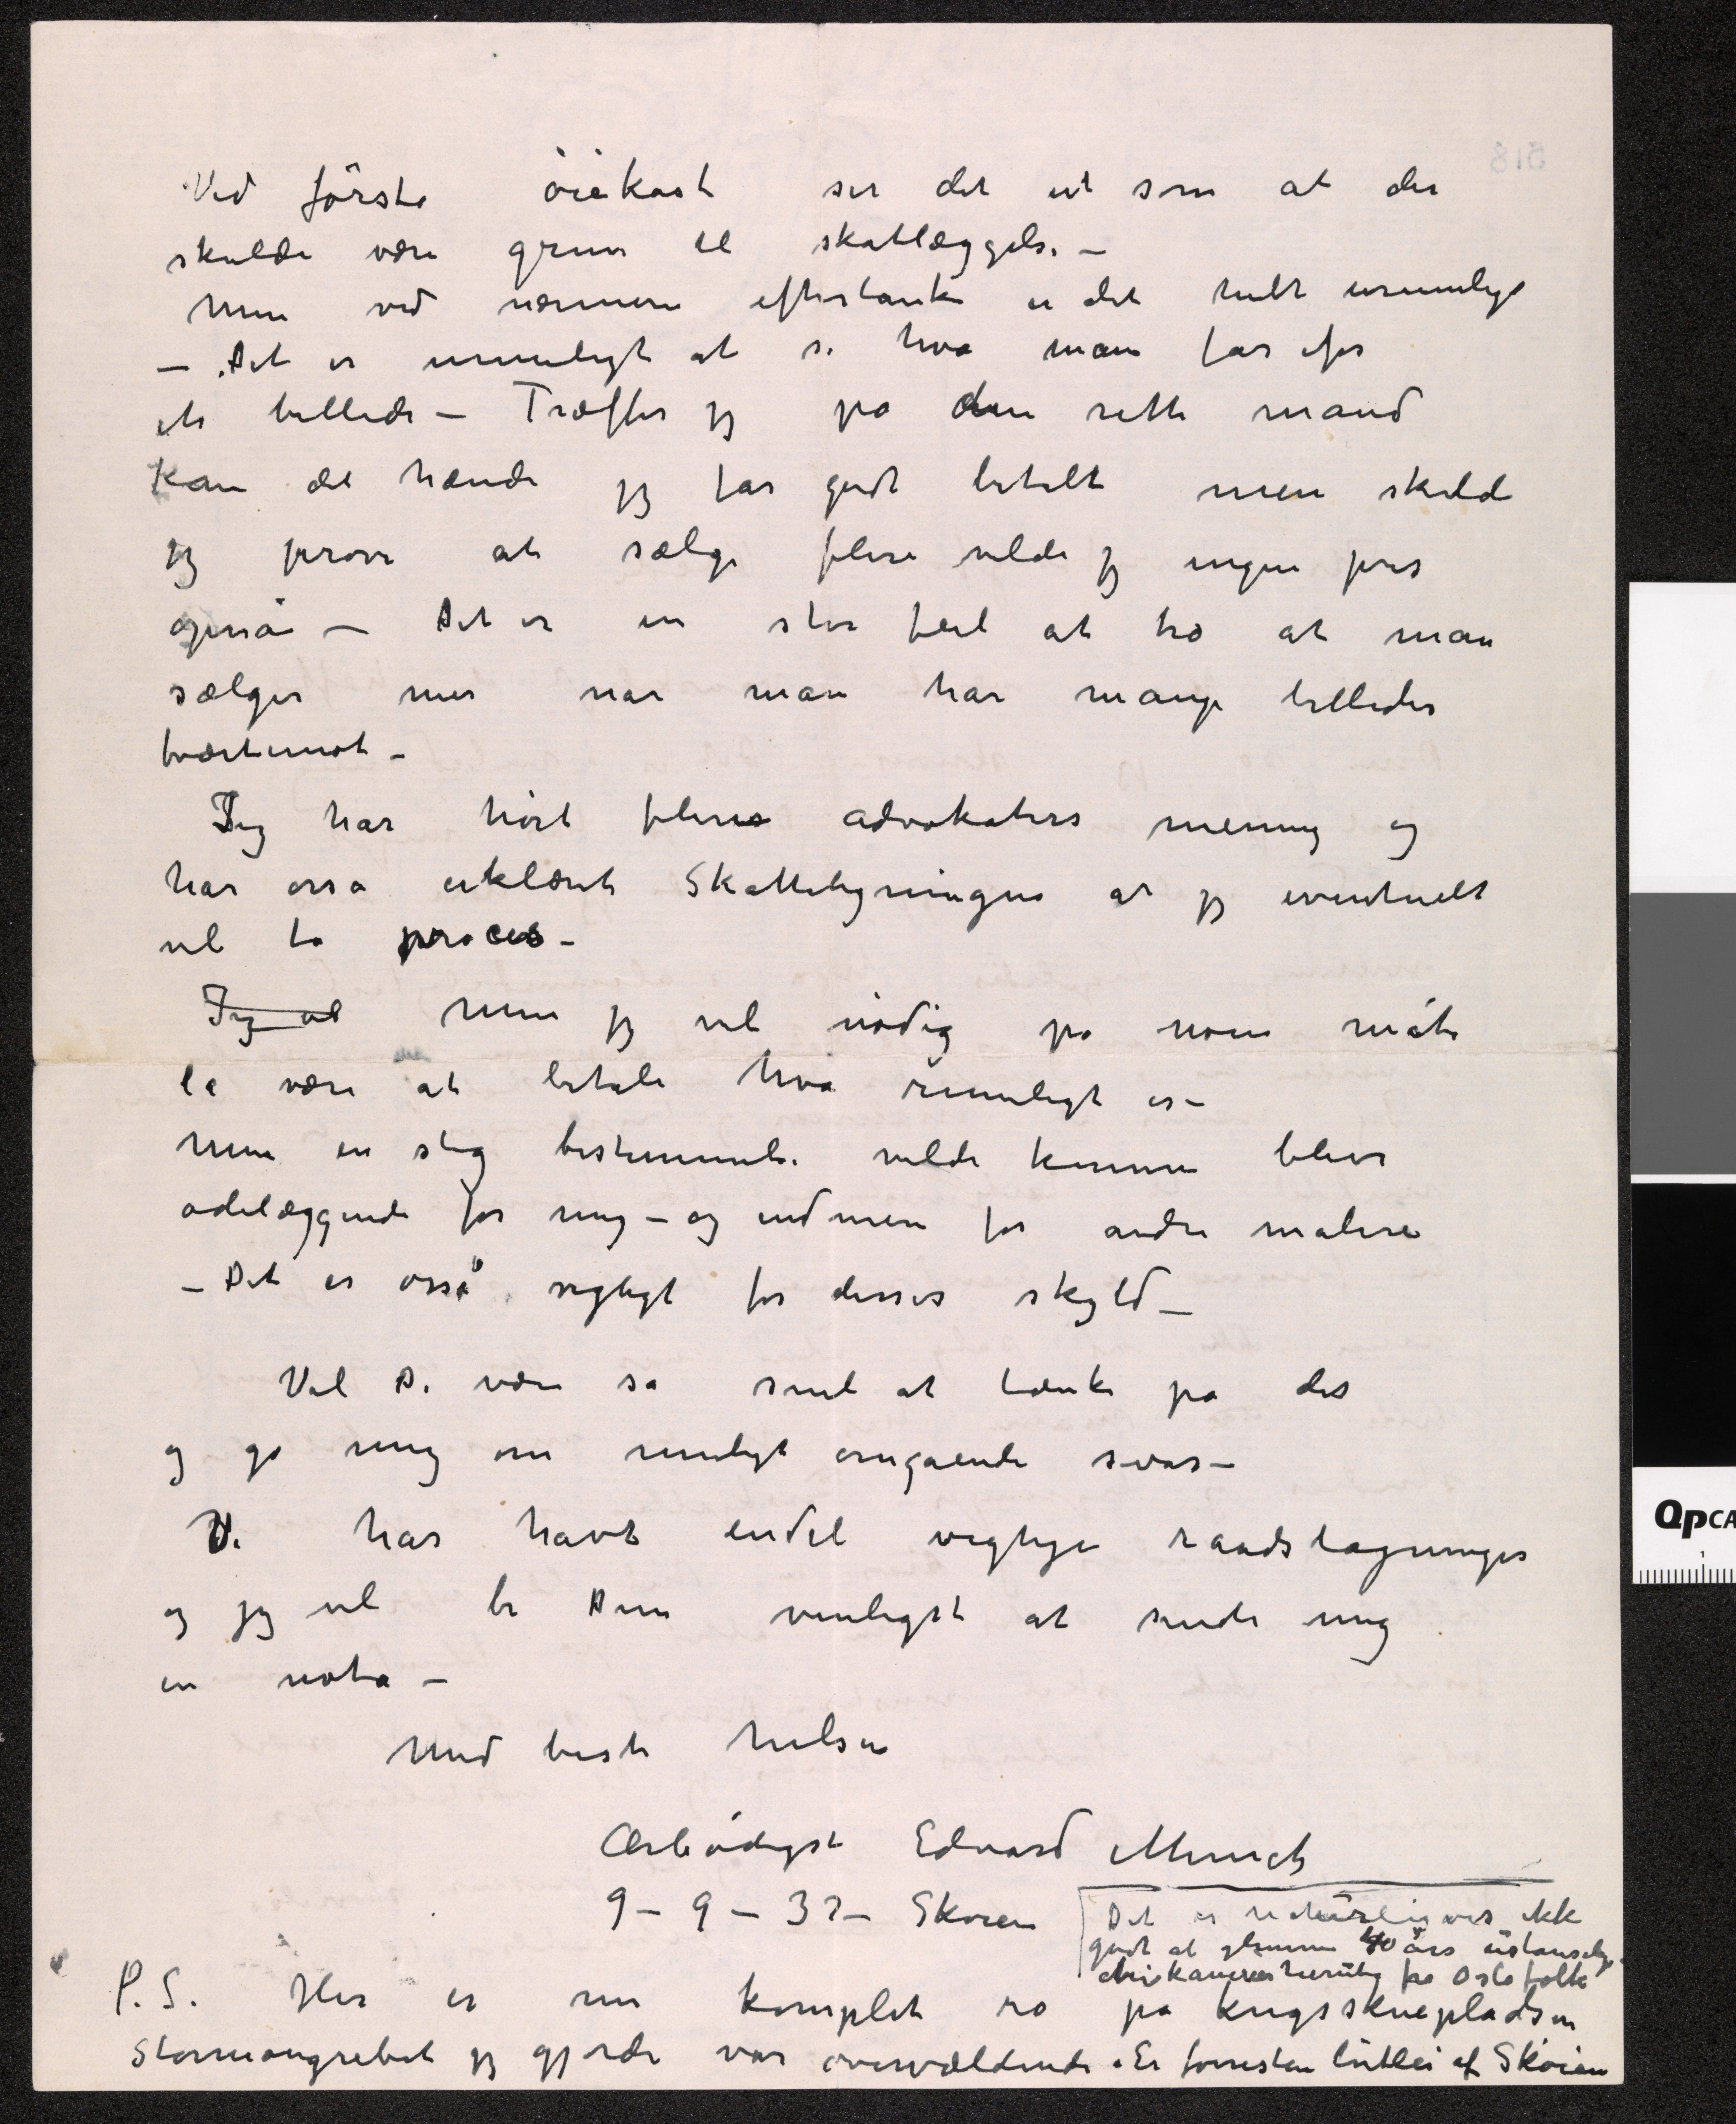 Ved første öiekast ser det ut som at der
skulde være grun til skatlæggelse –
Men ved nærmere eftertanke er det helt urimelige
– Det er umuligt at si hva man får for
et billede – Træffer jeg på den rette mand
kan det hænde jeg får godt betalt men skulde
jeg prøve at sælge flere vilde jeg ingen pris
opnå – Det er en stor feil at tro at man
sælger mer når man har mange billeder
tværtimot –
Jeg har hørt fleres advokaters mening og
har osså erklæret Skatteligningen at jeg eventuelt
vil ta proces –
Jeg vil Men jeg vil nødig på noen måte
la være at betale hva rimeligt er –
Men en slig bestemmelse vilde kunne blive
ødelæggende for mig – og end mere for andre malere
– Det er osså vigtigt for disses skyld –
Vil De være så snil at tænke på det
og gi mig om muligt omgående svar –
Vi har havt endel vigtige raadslagninger
og jeg vil be Dem venligst at sende mig
en nota –
Med beste hilsen
Ærbødigst Edvard Munch
9 – 9 – 32 – Skøien
Det er naturligvis ikke
godt at glemme 40 års ustanselig
fra Oslofolk
P.S. Her er nu komplet ro på krigsskuepladsen
Stormangrebet jeg gjorde var overvældende. Er forresten luthei af Skøien
518
QPCA